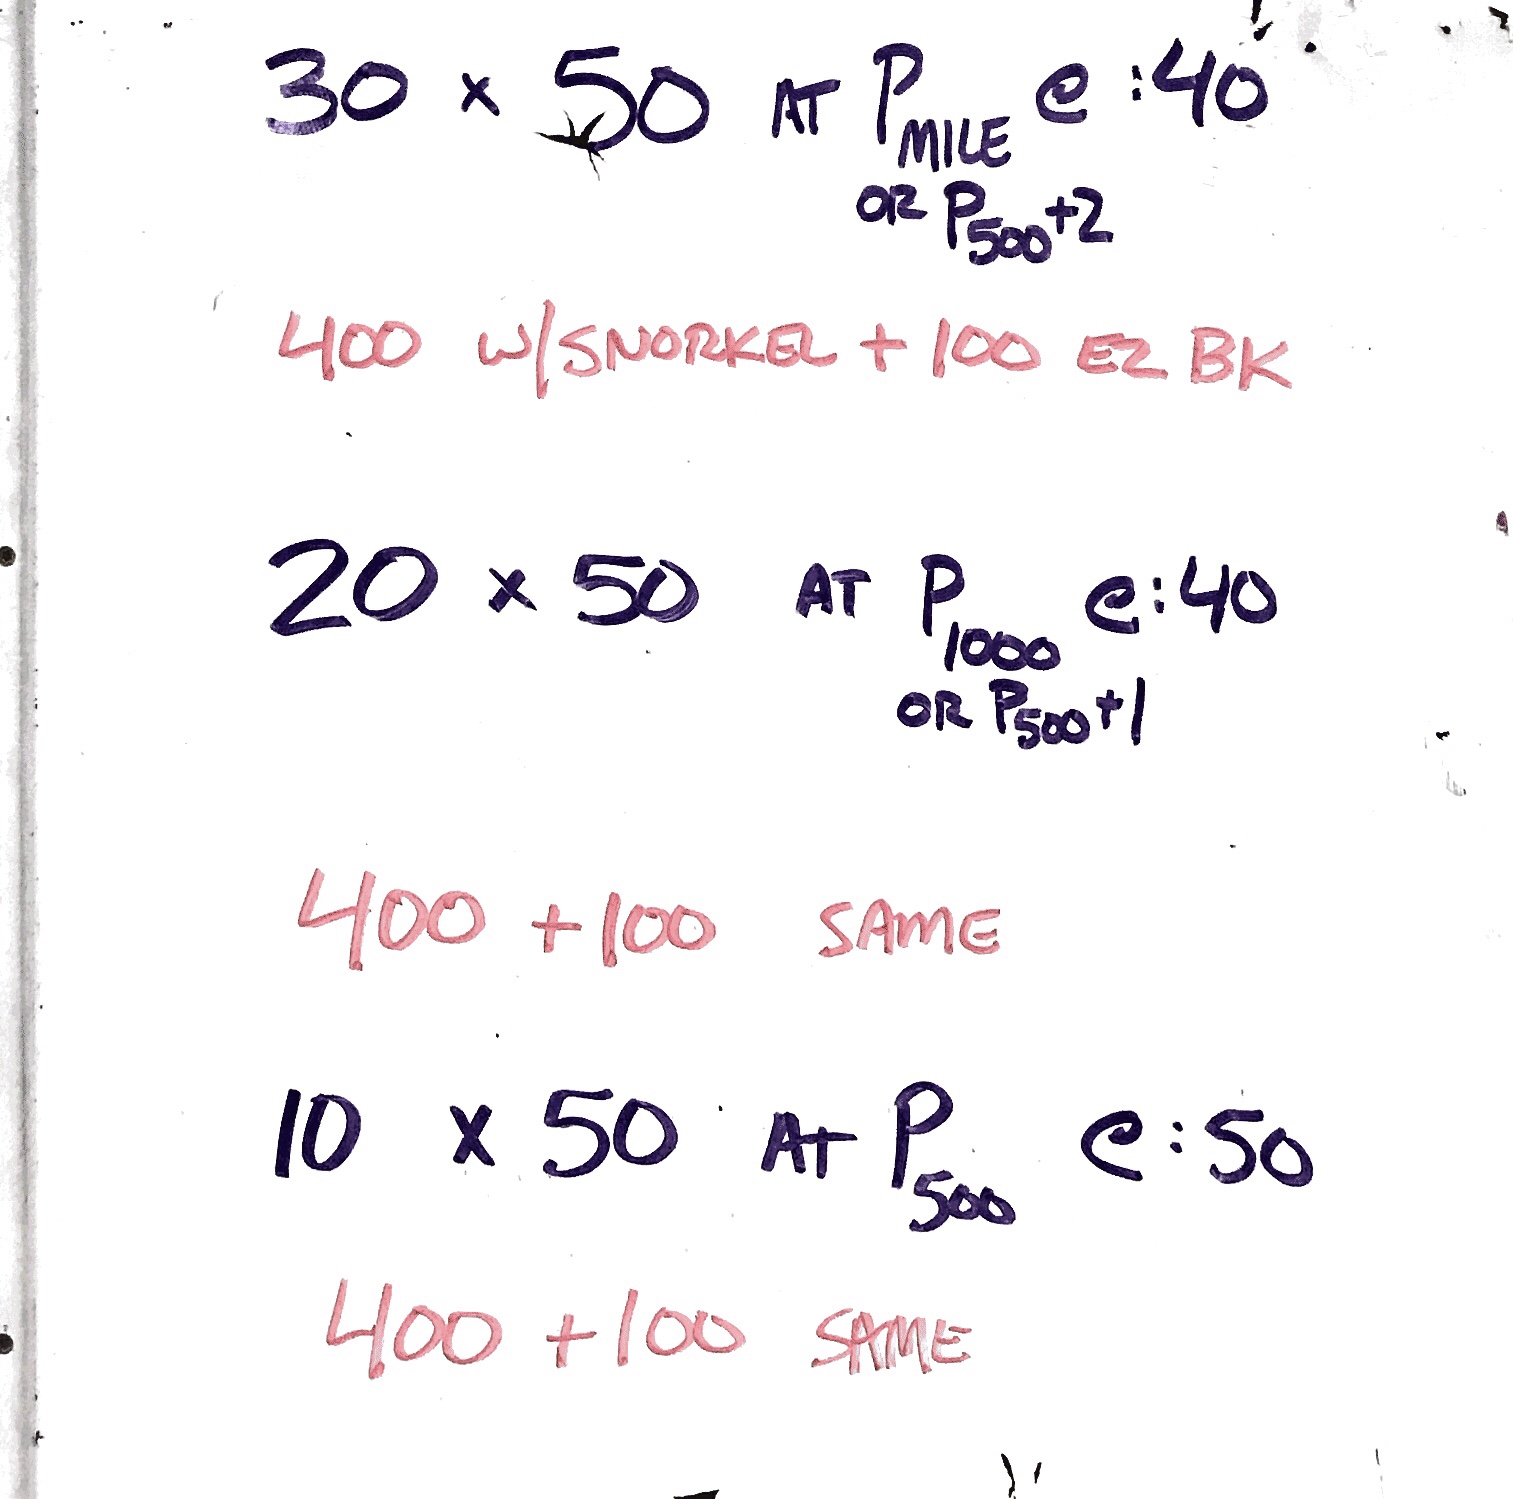 30 x 50 AT PMILE @ :40
OR P500+2
400 W/SNORKEL + 100 EZ BK
20 x 50 AT P1000 @ :40
OR P500+1
400 + 100 SAME
10 x 50 AT P500 @ :50
400 + 100 SAME